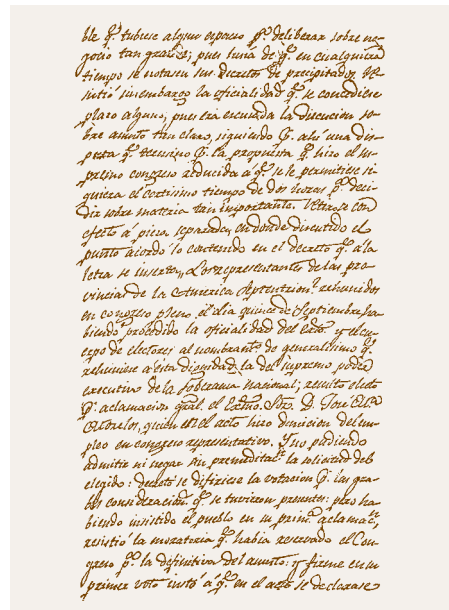 ble q.e tubiese algun espacio p.a deliberar sobre ne-
gocio tan grave; pues huia de q.e en cualquiera
tiempo se notasen sus decretos de precipitados. Re
sitió sin embargo la oficialidad q.e se concediese
plazo alguno, pues era escusada la discucion so-
bre asunto tan claro, siguiendo p.r ahi una dis-
puta q.e termino p.r la propuesta q.e hizo el su-
premo congreso reducida a q.e se le permitiese si-
quiera el cortisimo tiempo de dos horas p.a deci-
dir sobre materia tan importante. Retirose con
efecto á pieza separada, en donde discutido el
punto acordó lo contenido en el decreto q.e a la
letra se inserta, Los representantes de las pro-
vincias de la America Septentrion.l rehunidos
en congreso pleno el dia quince de Septiembre, ha-
biendo procedido la oficialidad del Exto. y el cu-
erpo de electores al nombramto. de generalisimo q.e
rehuniese a esta dignidad la del supremo poder
executivo de la soberania nacional; resultó electo
p.r aclamacion gral. el Exmo. Sor. D. José Ma.
Morelos, quien en el acto hizo dimicion del em-
pleo en congreso representativo. Y no pudiendo
admitir ni negar sin premeditac.n la solicitud del
elegido: decretó se difiriese la votacion p.r las gra-
bes consideracion.s q.e se tuvieron presentes: pero ha-
biendo insistido el pueblo en su prim.a aclamac.n,
resistió la moratoria q.e habia reservado el Con-
greso p.a la difinitiva del asunto: y firme en su
primer voto instó á q.e en el acto se declarase